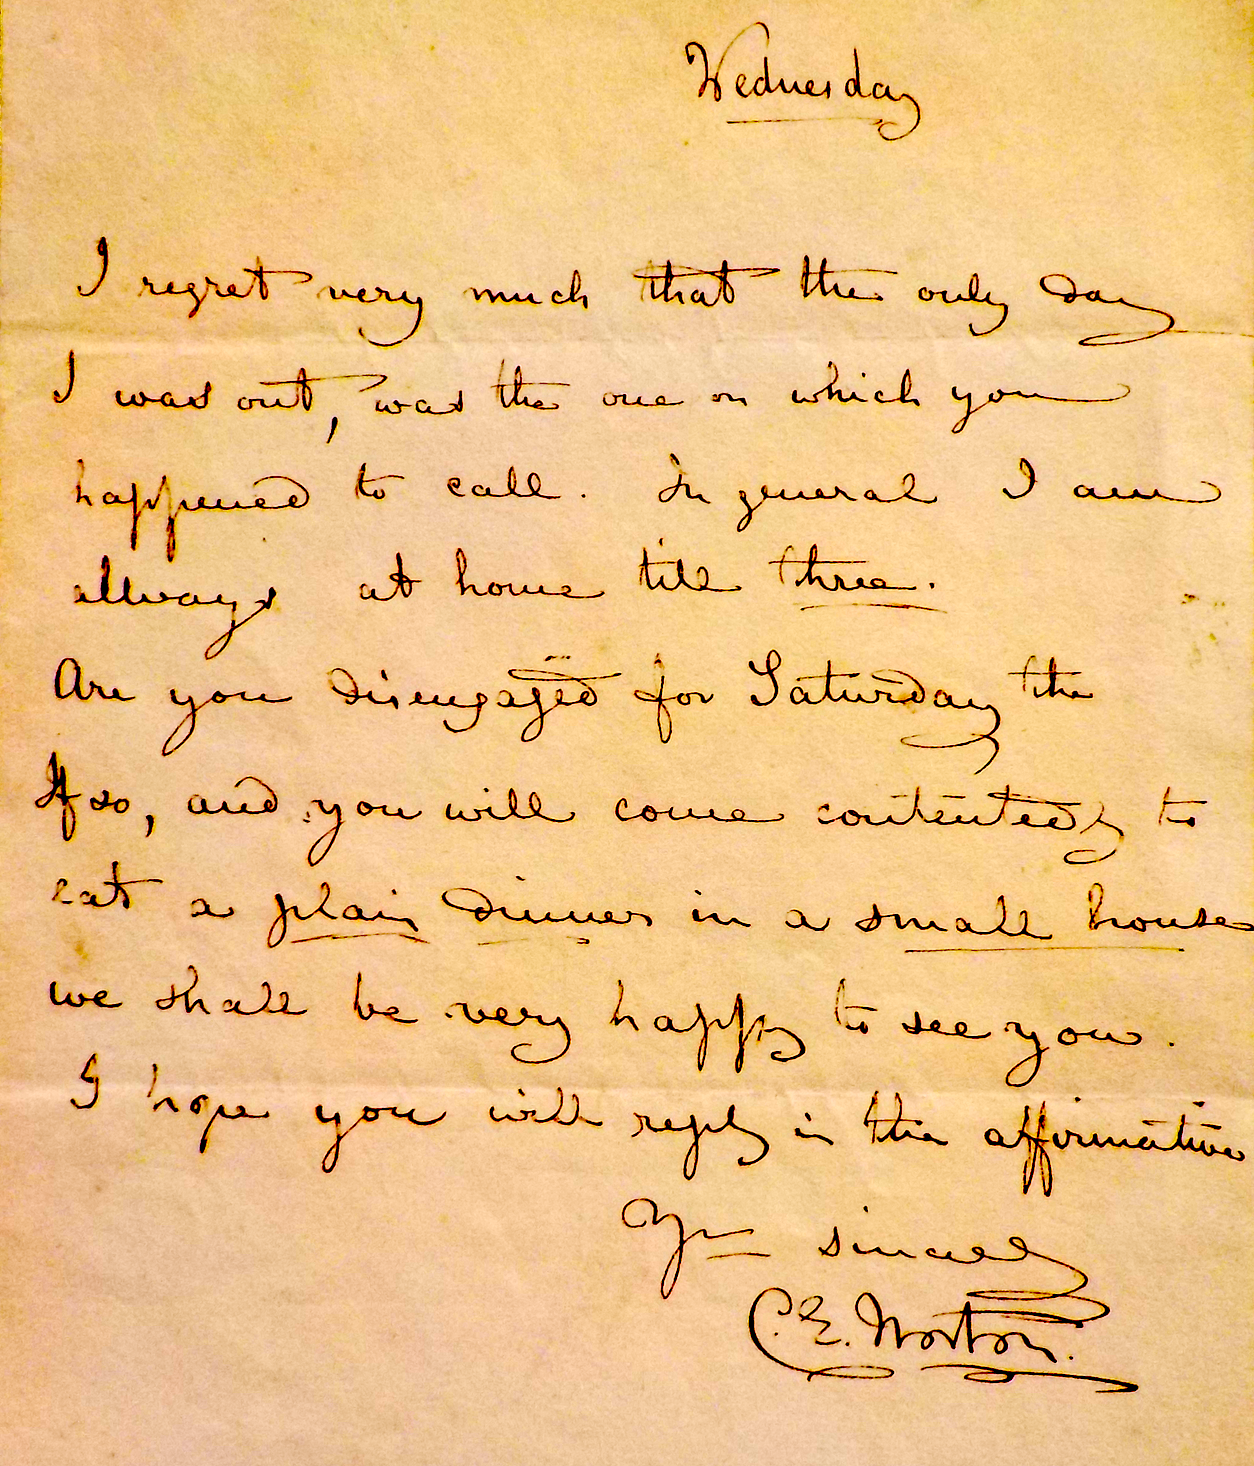 Wednesday
I regret very much that the only day
I was out, was the one on which you
happened to call. In general I am
allways at home till three.
Are you disengaged for Saturday the
If so, and you will come contentedly to
eat a plain dinner in a small house
we shall be very happy to see you.
I hope you will reply in the affirmative
Yrs sincerely
C. E. Norton.